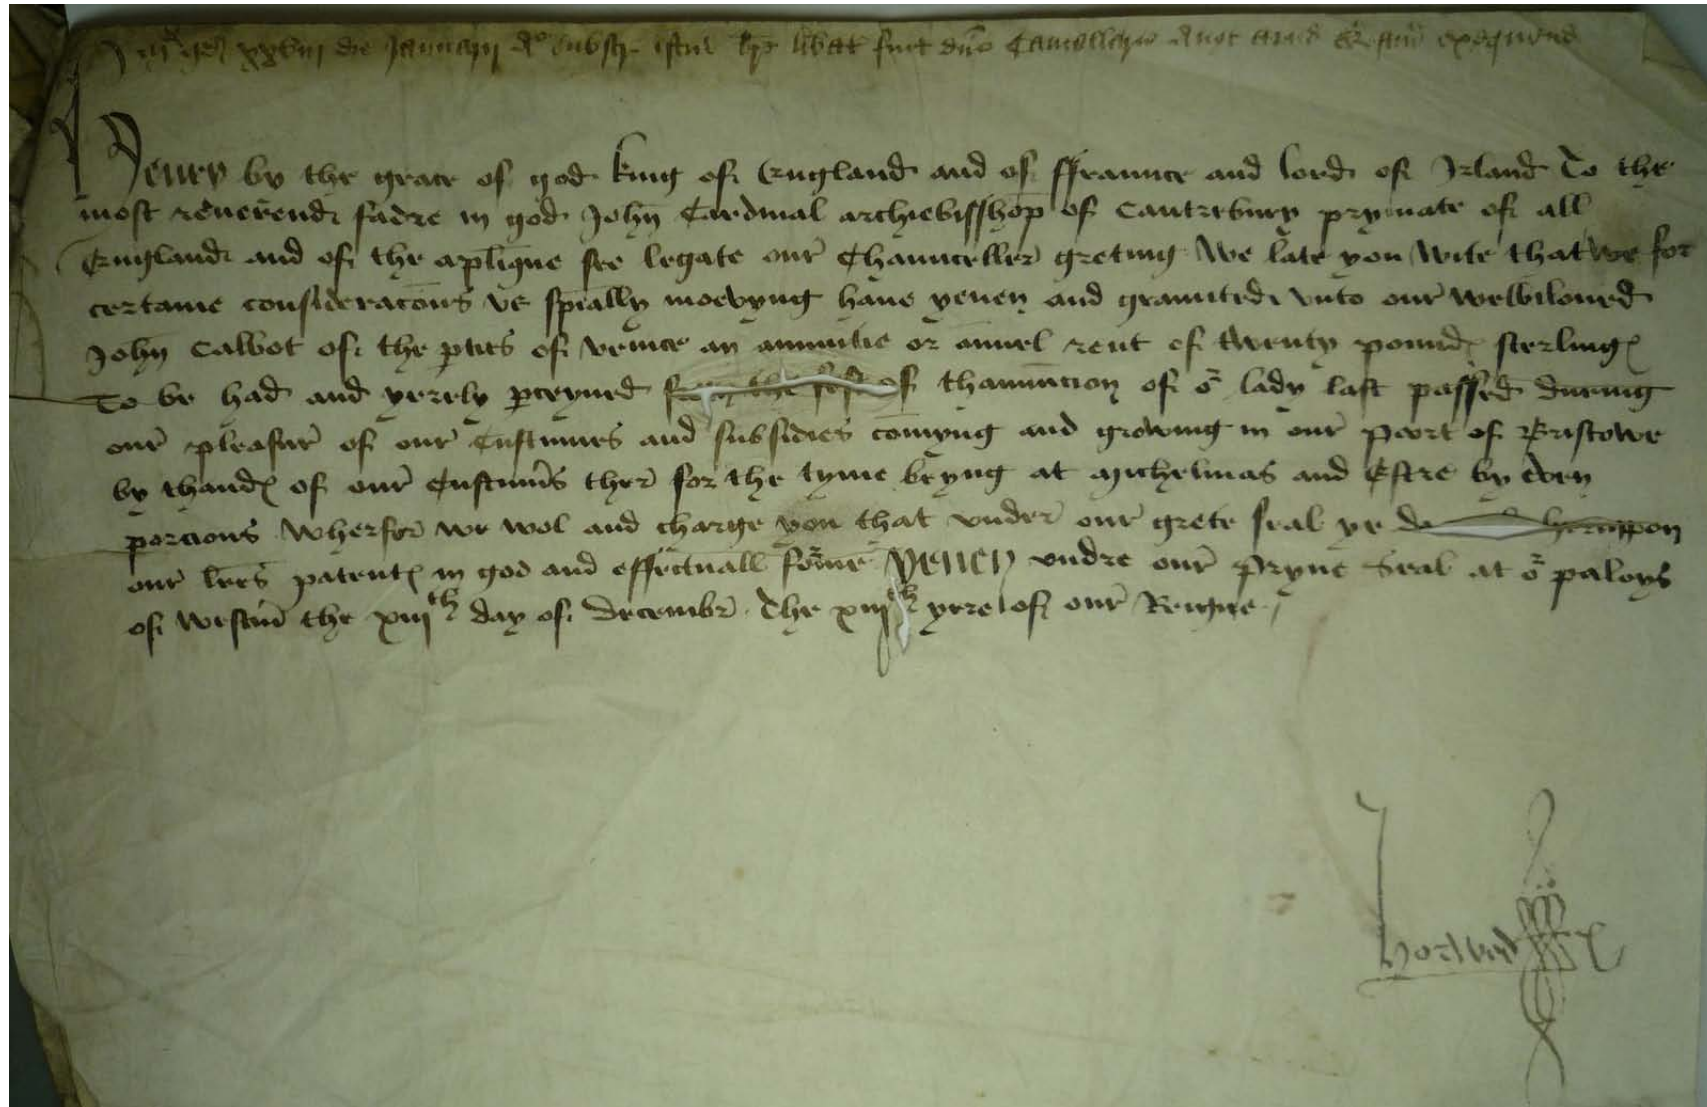 xxviij die Januarij Aº subscr istud br̄e lib̄at fuit dn̄o Cancellario Angł exequend
Henry by the grace of god king of England and of ffraunce and lord of Irland To the
most reu̾erend fadre in god John̄ Cardinal archiebisshop of Cantrebury prymate of all
England and of the apl̄ique see legate our̄ Chaunceller̄ greting We late you wite that we for
certaine consideracōns vs sp̄ially moevyng haue yeuen and graunted vnto our̄ welbiloued
John̄ Calbot of the p̱ties of venice an annuitie or ānuel rent of twenty pound sterling
To be had and yerely p̱ceyued from the fest of thannūcion of oʳ lady last passed during
our̄ pleasur̄ of our̄ Custumes and subsidies cōmyng and growing in our̄ poort of Bristowe
by thandes of our̄ Custum̄s ther̄ for the tyme beyng at Michelmas and Estre by even
porcions Wherfor̄ we wol and charge you that vnder̄ our̄ grete seal ye do herupon
our̄ l̄res patent in god and effectuall fourme yeuen vndre our̄ Pryue Seal at oʳ paloys
of Westm̄ the xiijᵗʰ day of Decembr̄ The xiijᵗʰ yere of our̄ Reigne
horwod